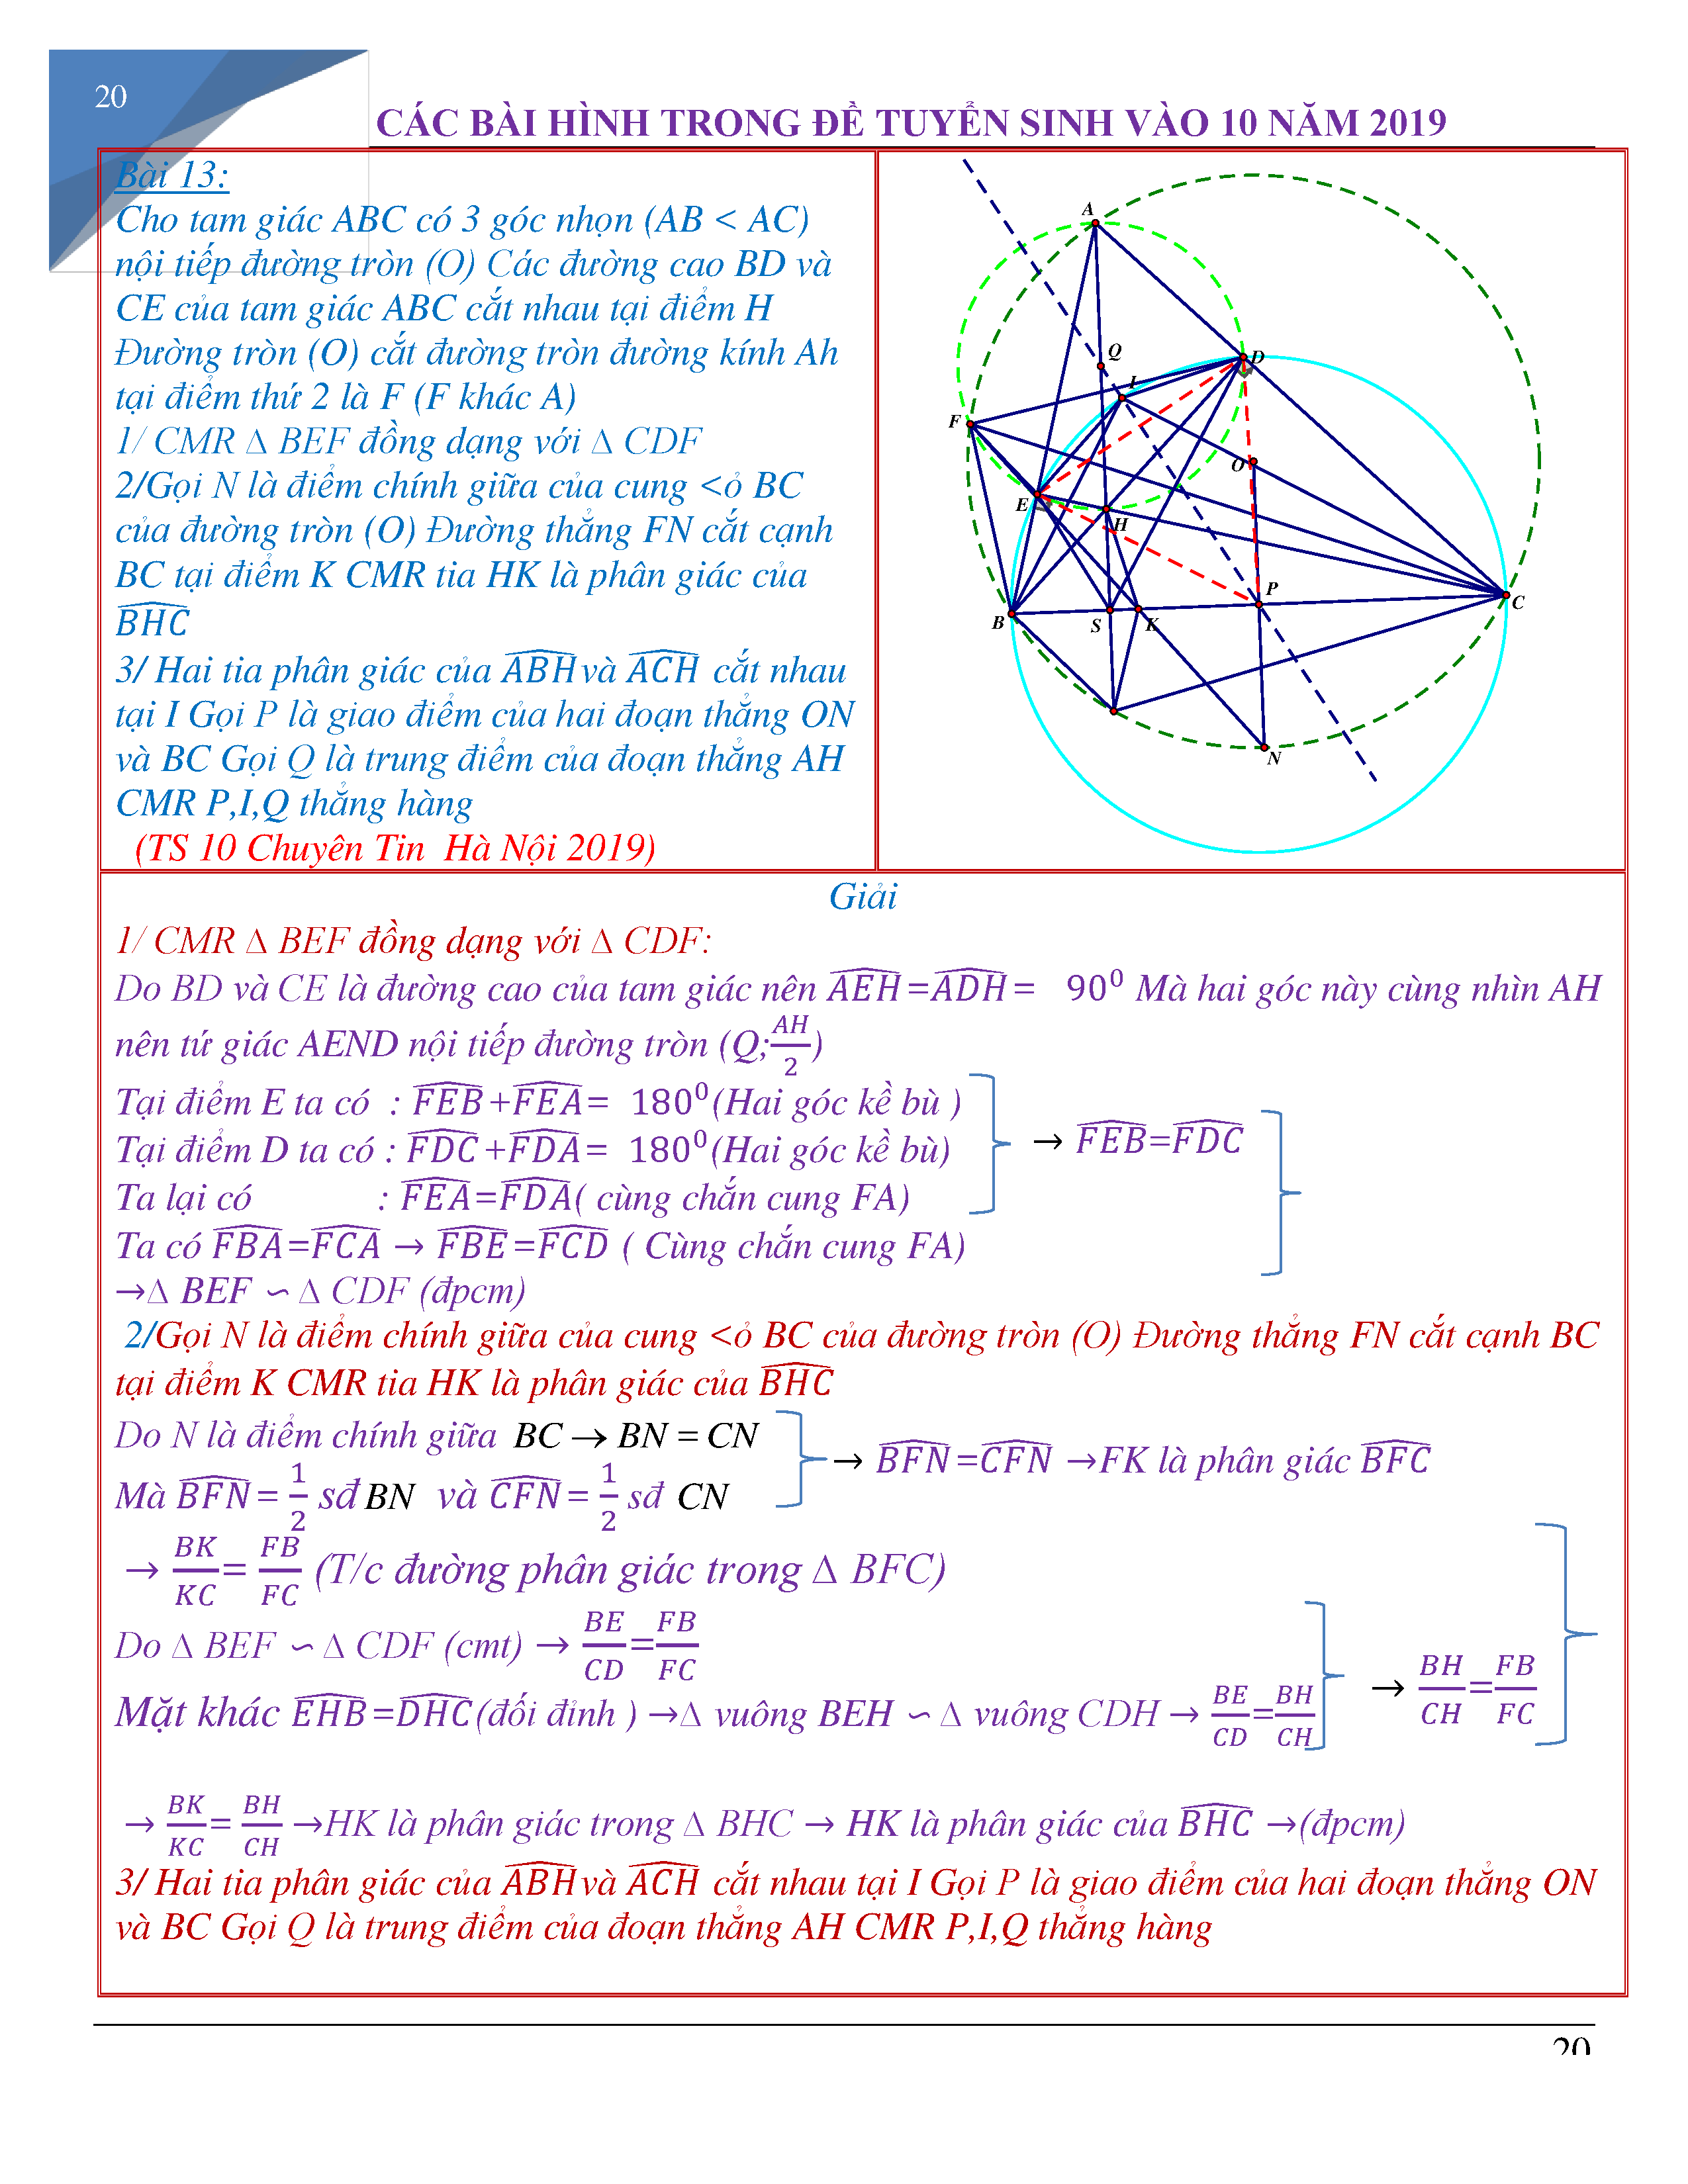 20
CÁC BÀI HÌNH TRONG ĐỀ TUYỂN SINH VÀO 10 NĂM 2019
Bài 13:
Cho tam giác ABC có 3 góc nhọn (AB < AC)
nội tiếp đường tròn (O) Các đường cao BD và
CE của tam giác ABC cắt nhau tại điểm H
Đường tròn (O) cắt đường tròn đường kính Ah
tại điểm thứ 2 là F (F khác A)
1/ CMR ∆ BEF đồng dạng với ∆ CDF
2/Gọi N là điểm chính giữa của cung <ỏ BC
của đường tròn (O) Đường thẳng FN cắt cạnh
BC tại điểm K CMR tia HK là phân giác của
$\widehat{BHC}$
3/ Hai tia phân giác của $\widehat{ABH}$và $\widehat{ACH}$ cắt nhau
tại I Gọi P là giao điểm của hai đoạn thẳng ON
và BC Gọi Q là trung điểm của đoạn thẳng AH
CMR P,I,Q thẳng hàng
(TS 10 Chuyên Tin Hà Nội 2019)
A
Q
D
I
F
O
E
H
P
C
B
S
K
N
Giải
1/ CMR ∆ BEF đồng dạng với ∆ CDF:
Do BD và CE là đường cao của tam giác nên $\widehat{AEH}$=$\widehat{ADH}$= $90^0$ Mà hai góc này cùng nhìn AH
nên tứ giác AEND nội tiếp đường tròn (Q;$\frac{AH}{2}$)
Tại điểm E ta có : $\widehat{FEB}$+$\widehat{FEA}$= $180^0$(Hai góc kề bù )
Tại điểm D ta có : $\widehat{FDC}$+$\widehat{FDA}$= $180^0$(Hai góc kề bù)
→ $\widehat{FEB}$=$\widehat{FDC}$
Ta lại có : $\widehat{FEA}$=$\widehat{FDA}$( cùng chắn cung FA)
Ta có $\widehat{FBA}$=$\widehat{FCA}$ → $\widehat{FBE}$=$\widehat{FCD}$ ( Cùng chắn cung FA)
→∆ BEF ∽ ∆ CDF (đpcm)
2/Gọi N là điểm chính giữa của cung <ỏ BC của đường tròn (O) Đường thẳng FN cắt cạnh BC
tại điểm K CMR tia HK là phân giác của $\widehat{BHC}$
Do N là điểm chính giữa BC → BN = CN
→ $\widehat{BFN}$=$\widehat{CFN}$ →FK là phân giác $\widehat{BFC}$
Mà $\widehat{BFN}$= $\frac{1}{2}$ sđ BN và $\widehat{CFN}$= $\frac{1}{2}$ sđ CN
→ $\frac{BK}{KC}$= $\frac{FB}{FC}$ (T/c đường phân giác trong ∆ BFC)
Do ∆ BEF ∽ ∆ CDF (cmt) → $\frac{BE}{CD}$=$\frac{FB}{FC}$
→ $\frac{BH}{CH}$=$\frac{FB}{FC}$
Mặt khác $\widehat{EHB}$=$\widehat{DHC}$(đối đỉnh ) →∆ vuông BEH ∽ ∆ vuông CDH → $\frac{BE}{CD}$=$\frac{BH}{CH}$
→ $\frac{BK}{KC}$= $\frac{BH}{CH}$ →HK là phân giác trong ∆ BHC → HK là phân giác của $\widehat{BHC}$ →(đpcm)
3/ Hai tia phân giác của $\widehat{ABH}$và $\widehat{ACH}$ cắt nhau tại I Gọi P là giao điểm của hai đoạn thẳng ON
và BC Gọi Q là trung điểm của đoạn thẳng AH CMR P,I,Q thẳng hàng
20